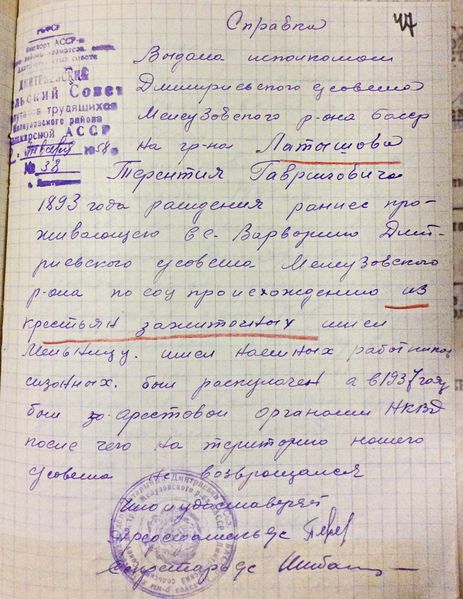 47
Справка
РСФСР
ДМИТРИЕВСКИЙ
СЕЛЬСКИЙ Совет
депутатов трудящихся
Мелеузовского района
Башкирской АССР
января 1958 г.
№ 38
Выдана исполкомом
Дмитриевского с/совета
Мелеузовского р-она БАССР
на гр-на Латышова
Терентия Гавриловича
1893 года рождения раннее про-
живающего в с. Варварино Дмит-
риевского с/совета Мелеузовского
р-она по соц происхождению из
крестьян зажиточных имел
мельницу. имел наемных работников
сизонных. был раскулачен а в 1937 году
был за-арестован органами НКВД
после чего на територию нашего
с/совета не возвращался
что и удостоверяет
председатель с/с
секретарь с/с